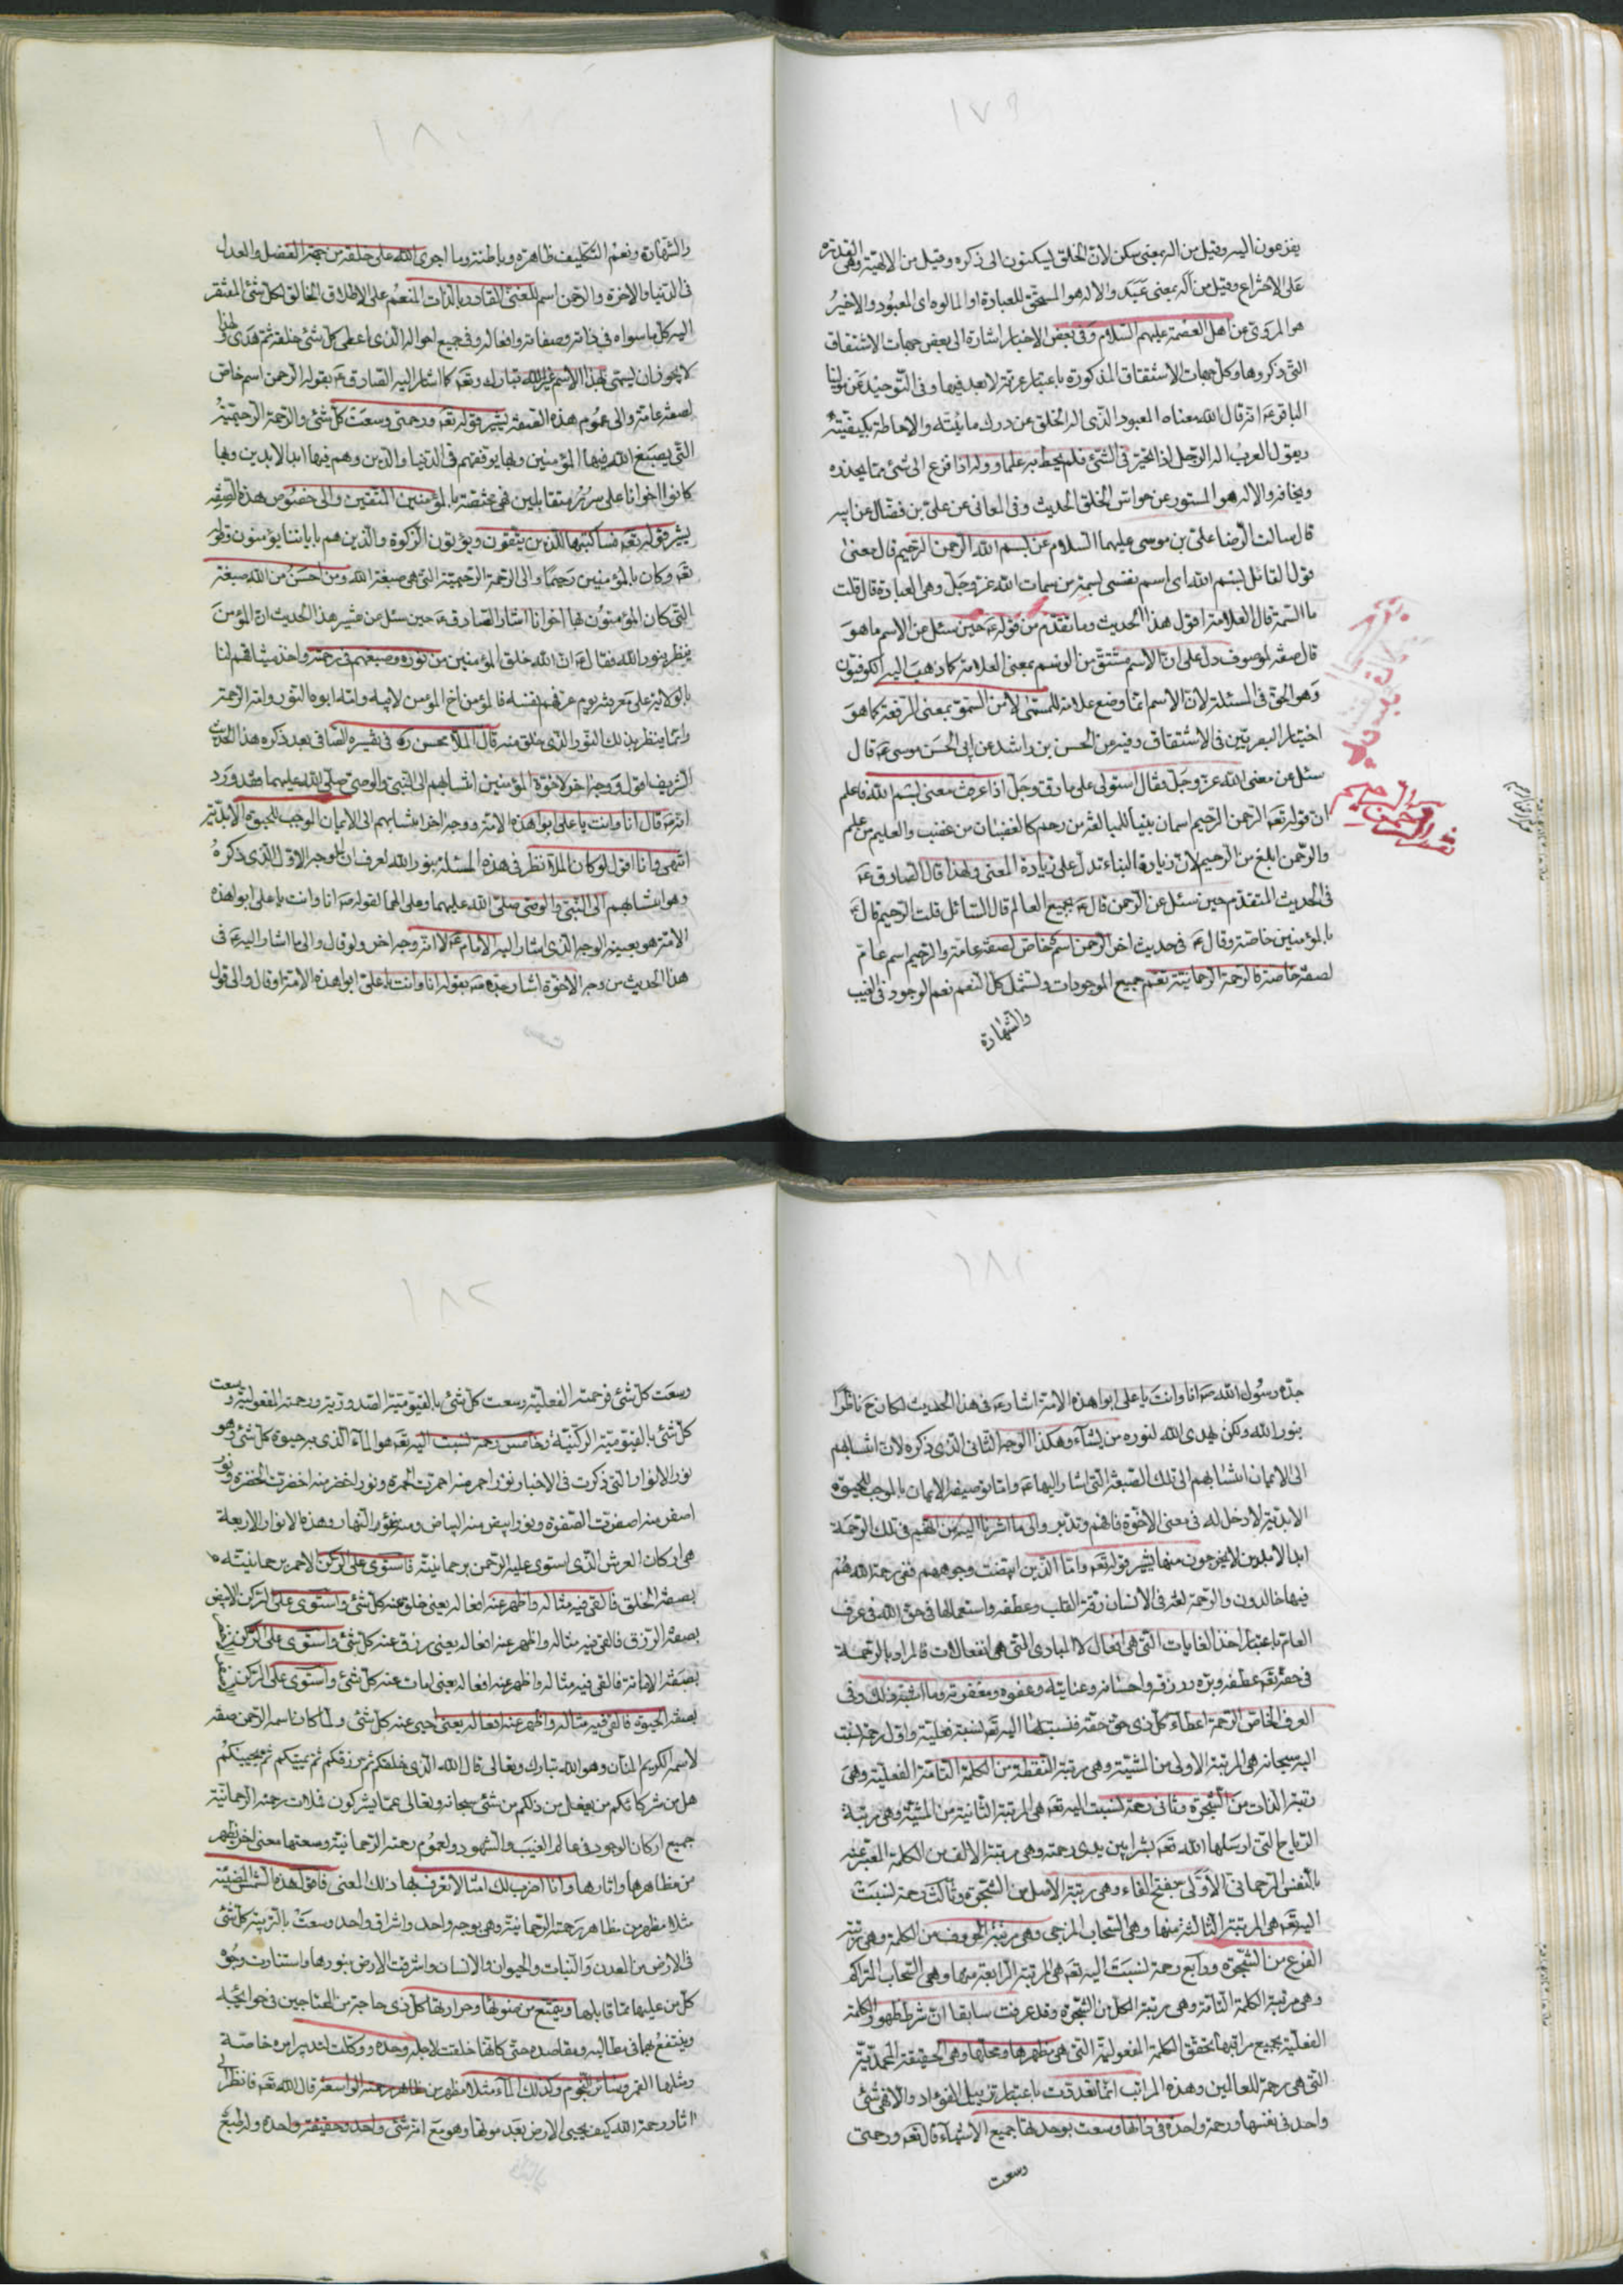 ١٧٩
يفزعون اليه وقيل من اله بمعنى سكن لان الخلق يسكنون الى ذكره وقيل من الالهية وهى القدرة
على الاختراع وقيل من اله بمعنى عبد والاله هو المستحق للعبادة او المالوه اى المعبود والاخير
هو المروى عن اهل العصمة عليهم السلام وفى بعض الاخبار اشارة الى بعض جهات الاشتقاق
التى ذكروها وكل جهات الاشتقاق المذكورة باعتبار عربية لا بعد فيها وفى التوحيد عن مولينا
الباقر عه انه قال الله معناه المعبود الذى اله الخلق عن درك مائيته والاحاطة بكيفيته
ويقول العرب اله الرجل اذا تحير فى الشئ فلم يحط به علما ووله اذا فزع الى شئ مما يحذره
ويخافه والاله هو المستور عن حواس الخلق الحديث وفى المعانى عن على بن فضال عن ابيه
قال سالت الرضا على بن موسى عليهما السلام عن بسم الله الرحمن الرحيم قال معنى
قول القائل بسم الله اى اسم نفسى بسمة من سمات الله عز وجل وهى العبادة قال قلت
ما السمة قال العلامة اقول هذا الحديث وما تقدم من قوله عه حين سئل عن الاسم ما هو
قال صفة لموصوف دل على ان الاسم مشتق من الوسم بمعنى العلامة كما ذهب اليه الكوفيون
وهو الحق فى المسئلة لان الاسم انما وضع علامة للمسمى لا من السمو بمعنى الرفعة كما هو
اختيار البصريين فى الاشتقاق وفيه عن الحسن بن راشد عن ابى الحسن موسى عه قال
سئل عن معنى الله عز وجل فقال استولى على ما دق وجل اذا عرفت معنى بسم الله فاعلم
ان قوله تعه الرحمن الرحيم اسمان بنيا للمبالغة من رحم كالغضبان من غضب والعليم من علم
والرحمن ابلغ من الرحيم لان زيادة البناء تدل على زيادة المعنى ولهذا قال الصادق عه
فى الحديث المتقدم حين سئل عن الرحمن قال عه بجميع العالم قال السائل قلت الرحيم قال عه
بالمؤمنين خاصة وقال عه فى حديث اخر الرحمن اسم خاص لصفة عامة والرحيم اسم عام
لصفة خاصة فالرحمة الرحمانية تعم جميع الموجودات وتشمل كل النعم نعم الوجود فى الغيب
والشهادة
الرحمن الرحيم
١٨٠
والشهادة ونعم التكليف ظاهرة وباطنة وما اجرى الله على خلقه من جهة الفضل والعدل
فى الدنيا والاخرة والرحمن اسم للغنى القادر بالذات المنعم على الاطلاق الخالق لكل شئ المفتقر
اليه كل ما سواه فى ذاته وصفاته وافعاله وفى جميع احواله الذى اعطى كل شئ خلقه ثم هدى ولهذا
لا يجوز ان يسمى بهذا الاسم غير الله تبارك وتعه كما اشار اليه الصادق عه بقوله الرحمن اسم خاص
لصفة عامة والى عموم هذه الصفة يشير قوله تعه ورحمتى وسعت كل شئ والرحمة الرحيمية
التى يصبغ الله فيها المؤمنين وبها يوقفهم فى الدنيا والدين وهم فيها ابد الابدين وبها
كانوا اخوانا على سرر متقابلين فهى مختصة بالمؤمنين المتقين والى خصوص هذه الصفة
يشير قوله تعه فساكتبها للذين يتقون ويؤتون الزكوة والذين هم باياتنا يؤمنون وقوله
تعه وكان بالمؤمنين رحيما والى الرحمة الرحيمية التى هى صبغة الله ومن احسن من الله صبغة
التى كان المؤمنون بها اخوانا اشار الصادق عه حين سئل عن تفسير هذا الحديث ان المؤمن
ينظر بنور الله فقال عه ان الله خلق المؤمنين من نوره وصبغهم فى رحمته واخذ ميثاقهم لنا
بالولاية على معرفته يوم عرفهم نفسه فالمؤمن اخ المؤمن لابيه وامه ابوه النور وامه الرحمة
وانما ينظر بذلك النور الذى خلق منه قال الملا محسن ره فى تفسيره الصافى بعد ذكره هذا الحديث
الشريف اقول ووجه اخر لاخوة المؤمنين انتسابهم الى النبى والوصى صلى الله عليهما فقد ورد
انه عه قال انا وانت يا على ابوا هذه الامة ووجه اخر انتسابهم الى الايمان الموجب للحيوة الابدية
انتهى وانا اقول لو كان الملا نظر فى هذه المسئلة بنور الله لعرف ان الوجه الاول الذى ذكره
وهو انتسابهم الى النبى والوصى صلى الله عليهما وعلى الهما لقوله صه انا وانت يا على ابوا هذه
الامة هو بعينه الوجه الذى اشار اليه الامام عه لا انه وجه اخر ولو قال والى ما اشار اليه عه فى
هذا الحديث من وجه الاخوة اشار جده صه بقوله انا وانت يا على ابوا هذه الامة او قال والى قول
١٨١
جده رسول الله صه انا وانت يا على ابوا هذه الامة اشار عه فى هذا الحديث لكان ح ناظرا
بنور الله ولكن يهدى الله لنوره من يشاء وهكذا الوجه الثانى الذى ذكره لان انتسابهم
الى الايمان انتسابهم الى تلك الصبغة التى اشار اليها عه واما توصيفه الايمان بالموجب للحيوة
الابدية لا دخل له فى معنى الاخوة فافهم وتدبر والى ما اشرنا اليه من انهم فى تلك الرحمة
ابد الابدين لا يخرجون منها يشير قوله تعه واما الذين ابيضت وجوههم ففى رحمة الله هم
فيها خالدون والرحمة لغة فى الانسان رقة القلب وعطفه واستعمالها فى حق الله فى عرف
العام باعتبار اخذ الغايات التى هى افعال لا المبادى التى هى انفعالات فالمراد بالرحمة
فى حقه تعه عطفه وبره ورزقه واحسانه وعنايته وعفوه ومغفرته وما اشبه ذلك وفى
العرف الخاص الرحمة اعطاء كل ذى حق حقه فنسبتها اليه تعه نسبة فعلية واول رحمة نسبت
اليه سبحانه هى المرتبة الاولى من المشية وهى رتبة النقطة من الكلمة التامة الفعلية وهى
رتبة الذات من الشجرة وثانى رحمة نسبت اليه تعه هى المرتبة الثانية من المشية وهى رتبة
الرياح التى ارسلها الله تعه بشرا بين يدى رحمته وهى مرتبة الالف من الكلمة المعبر عنه
بالنفس الرحمانى الاولى بفتح الفاء وهى رتبة الاصل من الشجرة وثالث رحمة نسبت
اليه تعه هى المرتبة الثالثة منها وهى السحاب المزجى وهى رتبة الحروف من الكلمة وهى رتبة
الفرع من الشجرة ورابع رحمة نسبت اليه تعه هى المرتبة الرابعة منها وهى السحاب المتراكم
وهى مرتبة الكلمة التامة وهى رتبة الكل من الشجرة وقد عرفت سابقا ان شرط ظهور الكلمة
الفعلية بجميع مراتبها تحقق الكلمة المفعولية التى هى مظهرها ومحلها وهى الحقيقة المحمدية
التى هى رحمة للعالمين وهذه المراتب انما تعددت باعتبار تزييل الفؤاد والا فهى شئ
واحد فى نفسها ورحمة واحدة فى ذاتها وسعت بوحدتها جميع الاشياء قال تعه ورحمتى
وسعت
١٨٢
وسعت كل شئ فرحمته الفعلية وسعت كل شئ بالقيومية الصدورية ورحمته المفعولية وسعت
كل شئ بالقيومية الركنية وخامس رحمة نسبت اليه تعه هو الماء الذى به حيوة كل شئ وهو
نور الانوار التى ذكرت فى الاخبار نور احمر منه احمرت الحمرة ونور اخضر منه اخضرت الخضرة ونور
اصفر منه اصفرت الصفرة ونور ابيض منه البياض ومنه ضوء النهار وهذه الانوار الاربعة
هى اركان العرش الذى استوى عليه الرحمن برحمانيته فاستوى على الركن الاحمر برحمانيته
بصفة الخلق فالقى فيه مثاله واظهر عنه افعاله يعنى خلق عنه كل شئ واستوى على الركن الابيض
بصفة الرزق فالقى فيه مثاله واظهر عنه افعاله يعنى رزق عنه كل شئ واستوى على الركن
بصفة الاماتة فالقى فيه مثاله واظهر عنه افعاله يعنى امات عنه كل شئ واستوى على الركن
بصفة الحيوة فالقى فيه مثاله واظهر عنه افعاله يعنى احيى عنه كل شئ ولما كان اسمه الرحمن صفة
لاسمه الكريم المنان وهو الله تبارك وتعالى قال الله الذى خلقكم ثم رزقكم ثم يميتكم ثم يحييكم
هل من شركائكم من يفعل من ذلكم من شئ سبحانه وتعالى عما يشركون فملات رحمته الرحمانية
جميع اركان الوجود فى عالم الغيب والشهود ولعموم رحمته الرحمانية وسعتها معنى اخر يظهر
من مظاهرها واثارها وانا اضرب لك امثالا تعرف بها ذلك المعنى فاقول هذه الشمس المضيئة
مثلا مظهر من مظاهر رحمته الرحمانية وهى بوجه واحد واشراق واحد وسعت بالتربية كل شئ
فى الارض من المعدن والنبات والحيوان والانسان واشرقت الارض بنورها واستنارت وجوه
كل من عليها مما قابلها ويتمتع من ضوئها وحرارتها كل ذى حاجة من المحتاجين فى حوائجه
وينتفع بها فى مطالبه ومقاصده حتى كانها خلقت لاجله وحده ووكلت لتدبير امره خاصة
ومثلها القمر وسائر النجوم وكذلك الماء مثلا مظهر من مظاهر رحمته الواسعة قال الله تعه فانظر الى
اثار رحمة الله كيف يحيى الارض بعد موتها وهو مع انه شئ واحد وحقيقة واحدة